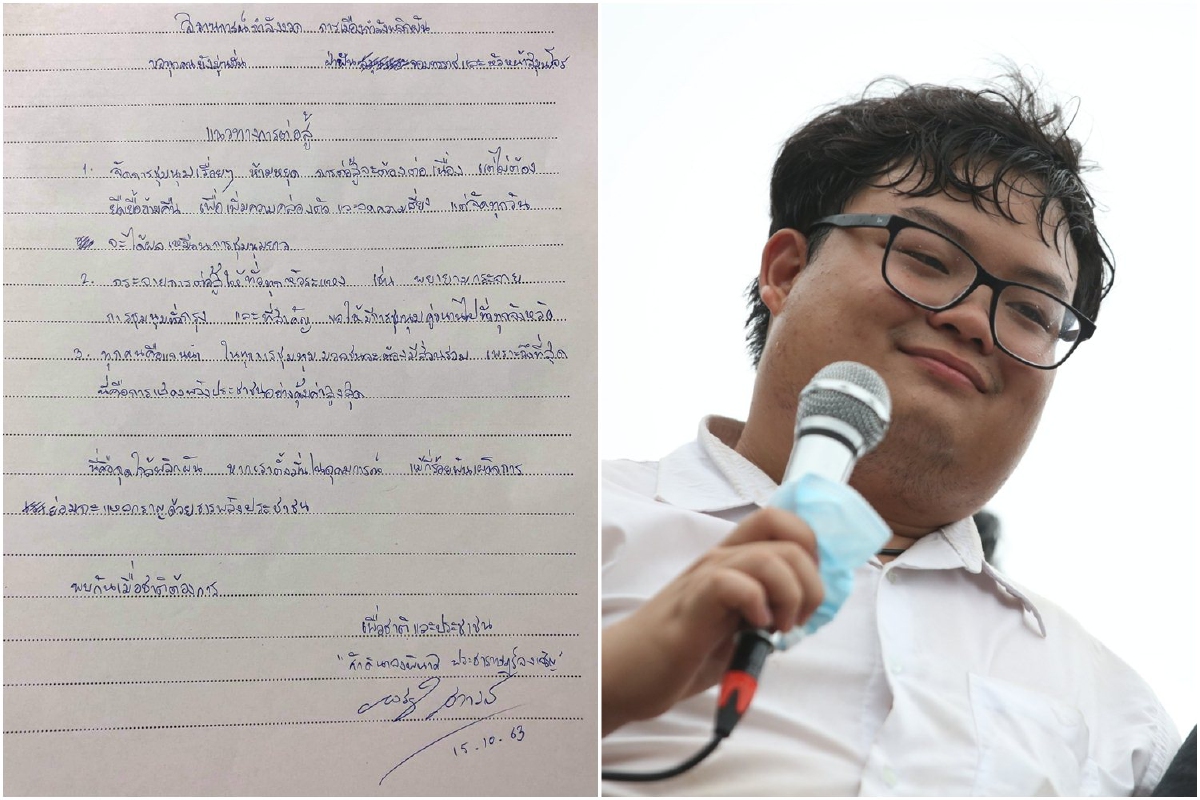 สถานการณ์กำลังงวด การเมืองกำลังพลิกผัน
ขอทุกคนยังอยู่เป็น ฝ่าฟัน และหัวหน้าขุนโจร
แนวทางการต่อสู้
1. จัดการชุมนุมเรื่อยๆ ห้ามหยุด การต่อสู้จะต้องต่อเนื่อง แต่ไม่ต้อง
ยืดเยื้อข้ามคืน เพื่อเพิ่มความคล่องตัว และลดความเสี่ยง แต่จัดทุกวัน
จะได้ผลเหมือนการชุมนุมยาว
2. กระจายการต่อสู้ให้ทั่วทุกหัวระแหง เช่น พยายามกระจาย
การชุมนุมทั่วกรุง และที่สำคัญ ขอให้มีการชุมนุมคู่ขนานไปทั่วทุกจังหวัด
3. ทุกคนคือแกนนำ ในทุกการชุมนุม มวลชนจะต้องมีส่วนร่วม เพราะถึงที่สุด
นี่คือการแสดงพลังประชาชนอย่างคุ้มค่าสูงสุด
นี่คือจุดใกล้พลิกผัน หากเราตั้งมั่นในอุดมการณ์ แม้กี่ร้อยพันเผด็จการ
ย่อมจะแหลกราญด้วยธารพลังประชาชน
พบกันเมื่อชาติต้องการ
เพื่อชาติและประชาชน
"ศักดินาจงพินาศ ประชาราษฎร์จงเจริญ"
15.10.63